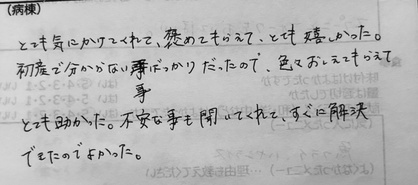 (病棟)
とても気にかけてくれて、褒めてもらえて、とても嬉しかった。
初産で分からない事ばっかりだったので、色々おしえてもらえて
とても助かった。不安な事も聞いてくれて、すぐに解決
できたのでよかった。